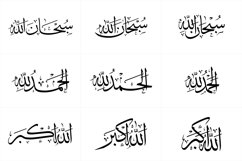 سُبْحَانَ اللّٰه سُبْحَانَ اللّٰه سُبْحَانَ اللّٰه
الحَمْدُ لِلّٰه الحَمْدُ لِلّٰه الحَمْدُ لِلّٰه
اللّٰهُ أَكْبَر اللّٰهُ أَكْبَر اللّٰهُ أَكْبَر